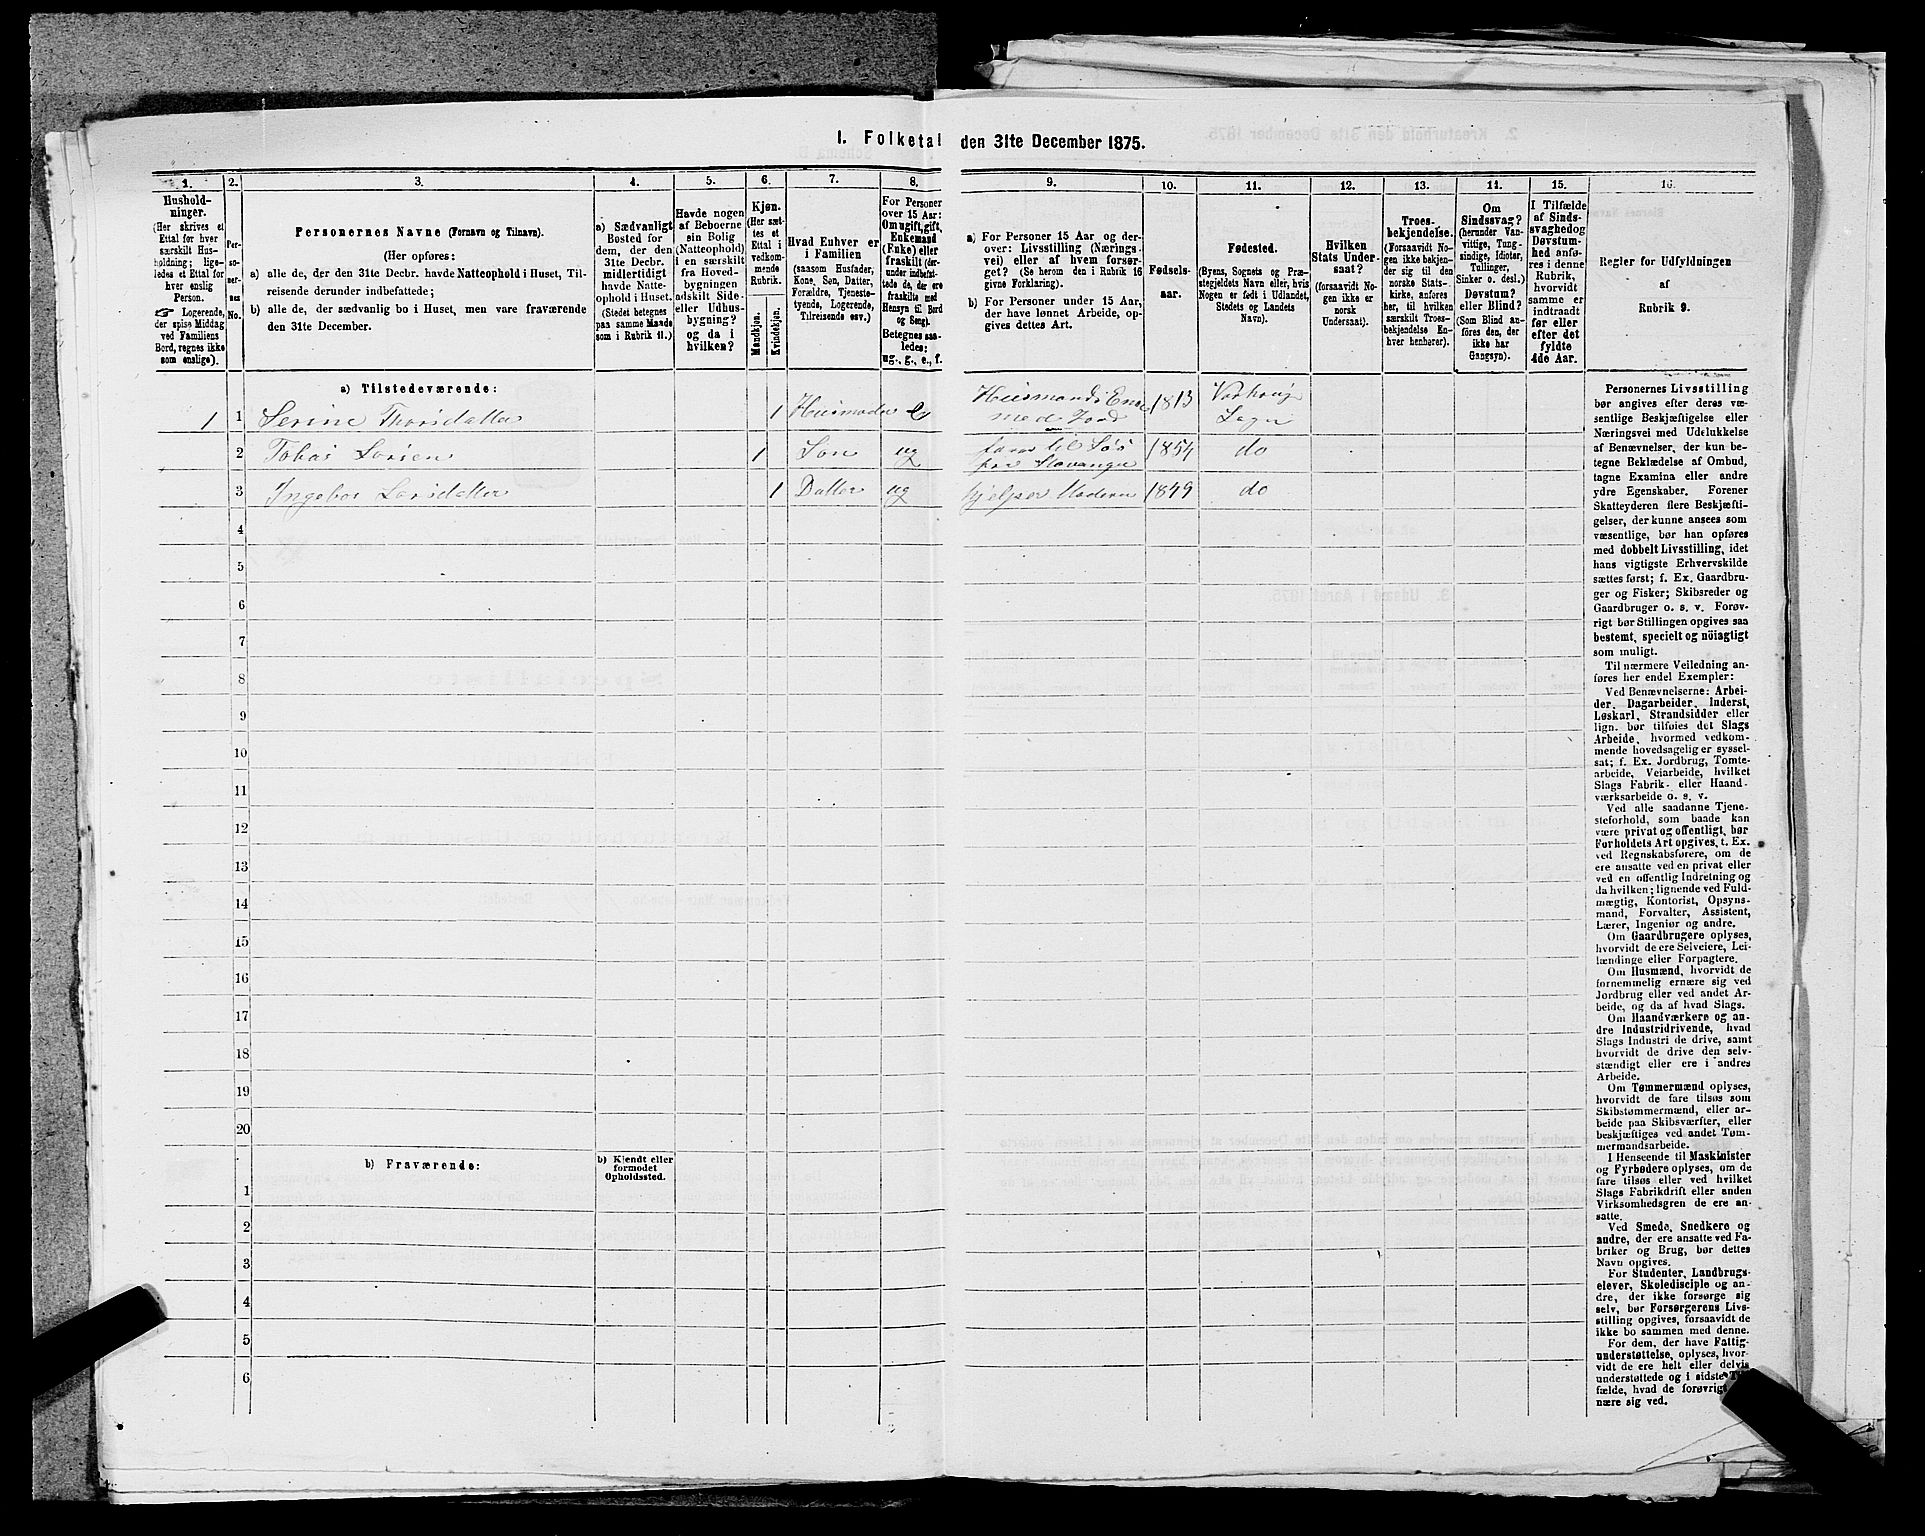 1. Folketal den 31te December 1875.
1.
2.
3.
4.
5.
6.
7.
8.
9.
10.
11.
12.
13.
14.
15.
16.
Hushold-
ninger.
(Her skrives et
Ettal for hver
særskilt Hus-
holdning; lige-
ledes et Ettal for
hver enslig
Person.
☞ Logerende,
der spise Middag
ved Familiens
Bord, regnes ikke
som enslige).
Per-
so-
ner-
nes
No.
Personernes Navne (Fornavn og Tilnavn).
(Her opføres:
a) alle de, der den 31te Decbr. havde Natteophold i Huset, Til-
reisende derunder indbefattede;
b) alle de, der sædvanlig bo i Huset, men vare fraværende
den 31te December.
a) Sædvanligt
Bosted for
dem, der den
31te Decbr.
midlertidigt
havde Natte-
ophold i Huset.
(Stedet betegnes
paa samme Maade
som i Rubrik 11.)
Havde nogen
af Beboerne
sin Bolig
(Natteophold)
i en særskilt
fra Hoved-
bygningen
adskilt Side-
eller Udhus-
bygning?
og da i
hvilken?
Kjøn.
(Her sæt-
tes et
Ettal i
vedkom-
mende
Rubrik.
Mandkjøn.
Kvindekjøn.
Hvad Enhver er
i Familien
(saasom Husfader,
Kone, Søn, Datter,
Forældre, Tjeneste-
tyende, Logerende,
Tilreisende osv.)
For Personer
over 15 Aar:
Om ugift, gift,
Enkemand
(Enke) eller
fraskilt (der-
under indbefat-
tede de, der ere
fraskilte med
Hensyn til Bord
og Seng).
Betegnes saa-
ledes:
ug., g., e., f.
a) For Personer 15 Aar og der-
over: Livsstilling (Nærings-
vei) eller af hvem forsør-
get? (Se herom den i Rubrik 16
givne Forklaring).
b) For Personer under 15 Aar,
der have lønnet Arbeide, op-
gives dettes Art.
Fødsels-
aar.
Fødested.
(Byens, Sognets og Præ-
stegjeldets Navn eller, hvis
Nogen er født i Udlandet,
Stedets og Landets
Navn).
Hvilken
Stats Under-
saat?
(forsaavidt No-
gen ikke er
norsk
Undersaat).
Troes-
bekjendelse.
(Forsaavidt No-
gen ikke bekjen-
der sig til den
norske Stats-
kirke, anføres
her, til hvilken
særskilt Troes-
bekjendelse En-
hver henhører).
Om
Sindssvag?
(herunder Van-
vittige, Tung-
sindige, Idioter,
Tullinger,
Sinker o. desl.)
Døvstum?
eller Blind?
(Som Blind an-
føres den, der
ikke har
Gangsyn).
I Tilfælde
af Sinds-
svaghedog
Døvstum-
hed anfø-
res i denne
Rubrik,
hvorvidt
samme er
indtraadt
før eller
efter det
fyldte
4de Aar.
Regler for Udfyldningen
af
Rubrik 9.
a) Tilstedeværende:
1 1 Serine Thorsdatter 1 Husmoder e Husmands Enke med Jord 1813
2 Tobias Larsen 1 Søn ug farer til Søs fra Stavanger 1854 do
3 Ingebor Larsdatter 1 Datter ug hjelper Moderen 1849 do
4
5
6
7
8
9
10
11
12
13
14
15
16
17
18
19
20
b) Fraværende:
b) Kjendt eller
formodet
Opholdssted.
1
2
3
4
5
6
Personernes Livsstilling
bør angives efter deres væ-
sentlige Beskjæftigelse eller
Næringsvei med Udelukkelse
af Benævnelser, der kun be-
tegne Beklædelse af Ombud,
tagne Examina eller andre
ydre Egenskaber. Forener
Skatteyderen flere Beskjæfti-
gelser, der kunne ansees som
væsentlige, bør han opføres
med dobbelt Livsstilling, idet
hans vigtigste Erhvervskilde
sættes først; f. Ex. Gaardbru-
ger og Fisker; Skibsreder og
Gaardbruger o. s. v. Forøv-
rigt bør Stillingen opgives saa
bestemt, specielt og nöiagtigt
som muligt.
Til nærmere Veiledning an-
føres her endel Exempler:
Ved Benævnelserne: Arbei-
der, Dagarbeider, Inderst,
Løskarl, Strandsidder eller
lign. bør tilføies det Slags
Arbeide, hvormed vedkom-
mende hovedsagelig er syssel-
sat; f. Ex. Jordbrug, Tomte-
arbeide, Veiarbeide, hvilket
Slags Fabrik- eller Haand-
værksarbeide o. s. v.
Ved alle saadanne Tjene-
steforhold, som baade kan
være privat og offentligt, bør
Forholdets Art opgives, t. Ex.
ved Regnskabsførere, om de
ere ansatte ved en privat eller
ved en offentlig Indretning og
da hvilken; lignende ved Fuld-
mægtig, Kontorist, Opsyns-
mand, Forvalter, Assistent,
Lærer, Ingeniør og andre.
Om Gaardbrugere oplyses,
hvorvidt de ere Selveiere, Lei-
lændinge eller Forpagtere.
Om Husmænd, hvorvidt de
fornemmelig ernære sig ved
Jordbrug eller ved andet Ar-
beide, og da af hvad Slags.
Om Haandværkere og an-
dre Industridrivende, hvad
Slags Industri de drive, samt
hvorvidt de drive den selv-
stændigt eller ere i andres
Arbeide.
Om Tømmermænd oplyses,
hvorvidt de fare tilsøs som
Skibstømmermænd, eller ar-
beide paa Skibsværfter, eller
beskjæftiges ved andet Tøm-
mermandsarbeide.
I Henseende til Maskinister
og Fyrbødere oplyses, om de
fare tilsøs eller ved hvilket
Slags Fabrikdrift eller anden
Virksomhedsgren de ere an-
satte.
Ved Smede, Snedkere og
andre, der ere ansatte ved Fa-
briker og Brug, bør dettes
Navn opgives.
For Studenter, Landbrugs-
elever, Skoledisciple og an-
dre, der ikke forsørge sig
selv, bør Forsørgerens Livs-
stilling opgives, forsaavidt de
ikke bo sammen med denne.
For dem, der have Fattig-
understøttelse, oplyses, hvor-
vidt de ere helt eller delvis
understøttede og i sidste
fælde, hvad de forøvrigt
nære sig ved.